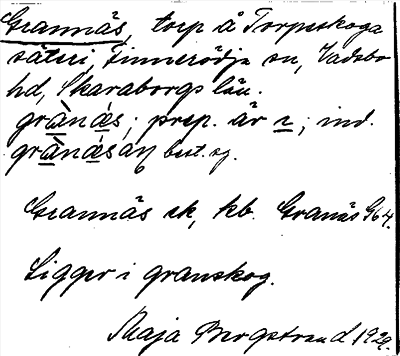 Grannäs, torp å Torpeskoga
säteri, Finnerödja sn, Vadsbo
hd, Skaraborgs län.
grànǽs; prep. är ı; ind.
grànǽsàn best. sg.
Grannäs ek, kb. Granäs G64.
Ligger i granskog.
Maja Bergstrand 1929.